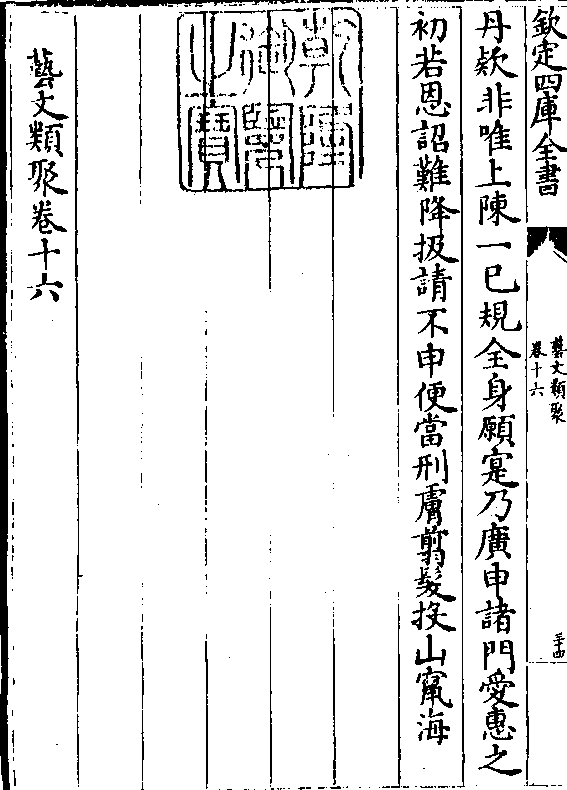 欽定四庫全書
藝文類聚
卷十六
三十四
丹欵非唯上陳一已規全身願寔乃廣申諸門愛惠之
初若恩詔難降披請不申便當刑膚翦髮投山竄海
乾隆
御覽
之寶
藝文類聚卷十六